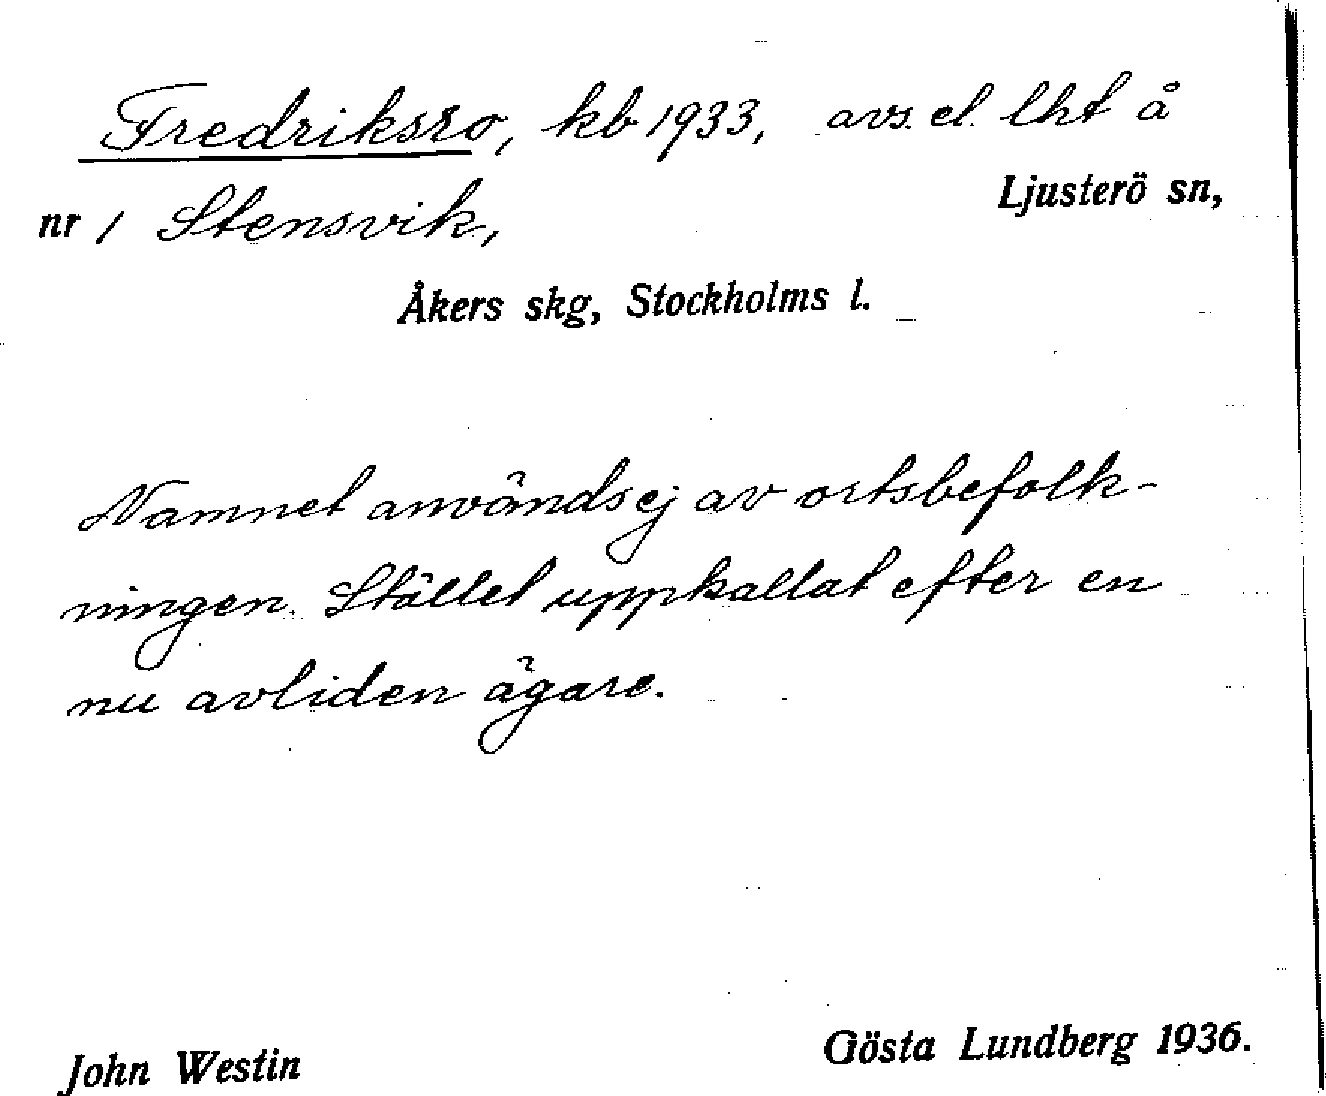 Fredriksro, kb 1933, avs. el. lht å
Ljusterö sn,
nr 1 Stensvik,
Åkers skg, Stockholms l.
Namnet användsej av ortsbefolk-
ningen. Stället uppkallat efter en
nu avliden ägare.
John Westin
Gösta Lundberg 1936.